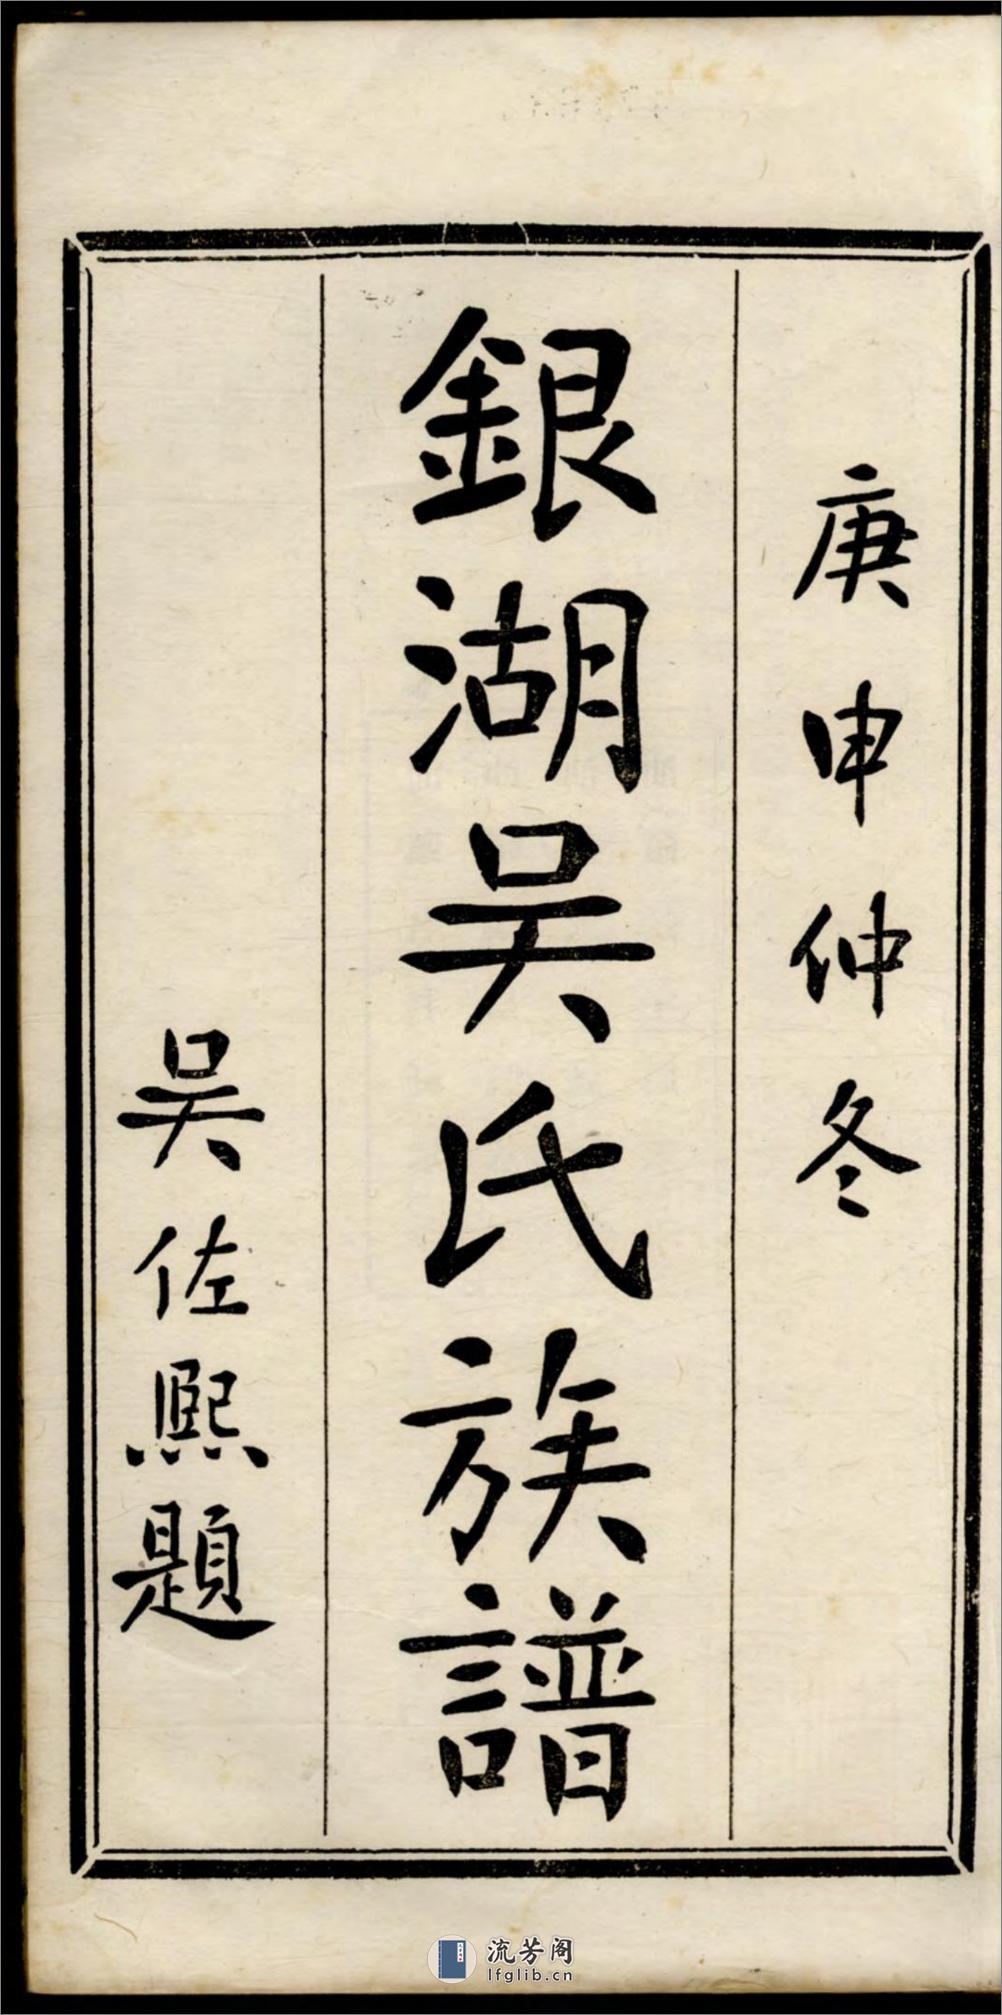 庚申仲冬
銀湖吴氏族譜
吴佐熙題
流芳阁
lfglib.cn